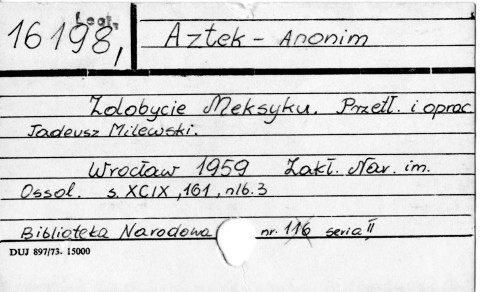 Leg.
16198, Aztek - Anonim
Zdobycie Meksyku. Przetł. i oprac
Tadeusz Milewski.
Wrocław 1959 Zakł. Nar. im.
Ossol. s. XCIX, 161, nlb. 3
Biblioteka Narodowa nr. 116 seria II
DUJ 897/73. 15000